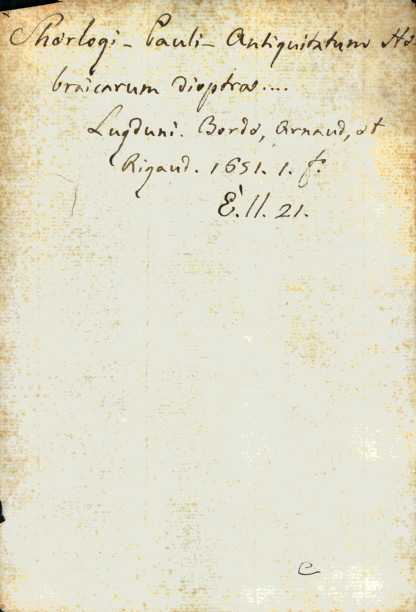 Sherlogi - Pauli - Antiquitatum He
braicarum dioptra....
Lugduni. Borde, Arnaud, et
Rigaud. 1651. 1. f.
E. 11. 21.
e